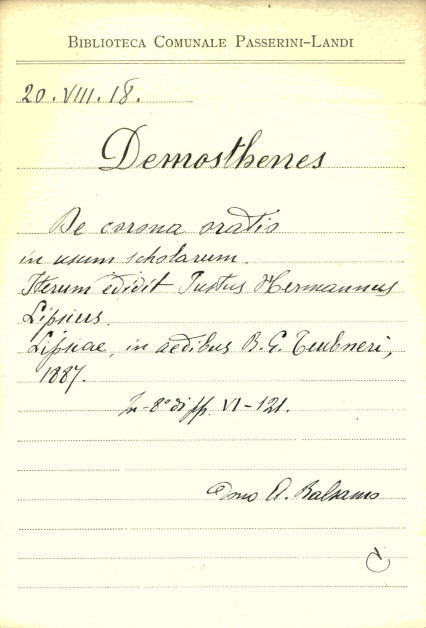 BIBLIOTECA COMUNALE PASSERINI-LANDI
20. VIII. 18.
Demosthenes
De corona oratio
in usum scholarum.
Iterum edidit Justus Hermannus
Lipsius.
Lipsiae, in aedibus B. G. Teubneri,
1887.
In-8º di pp. VI-121.
Dono A. Balsamo